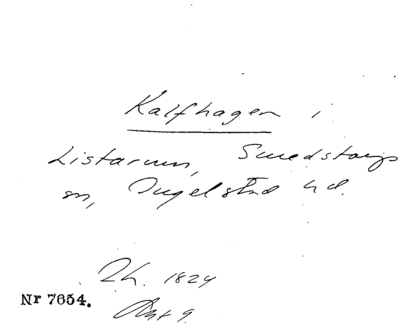 Kalfhagen i
Listarum, Smedstorps
sn, Ingelstad hd.
Lh. 1824
Nr 7654.
Akt 9